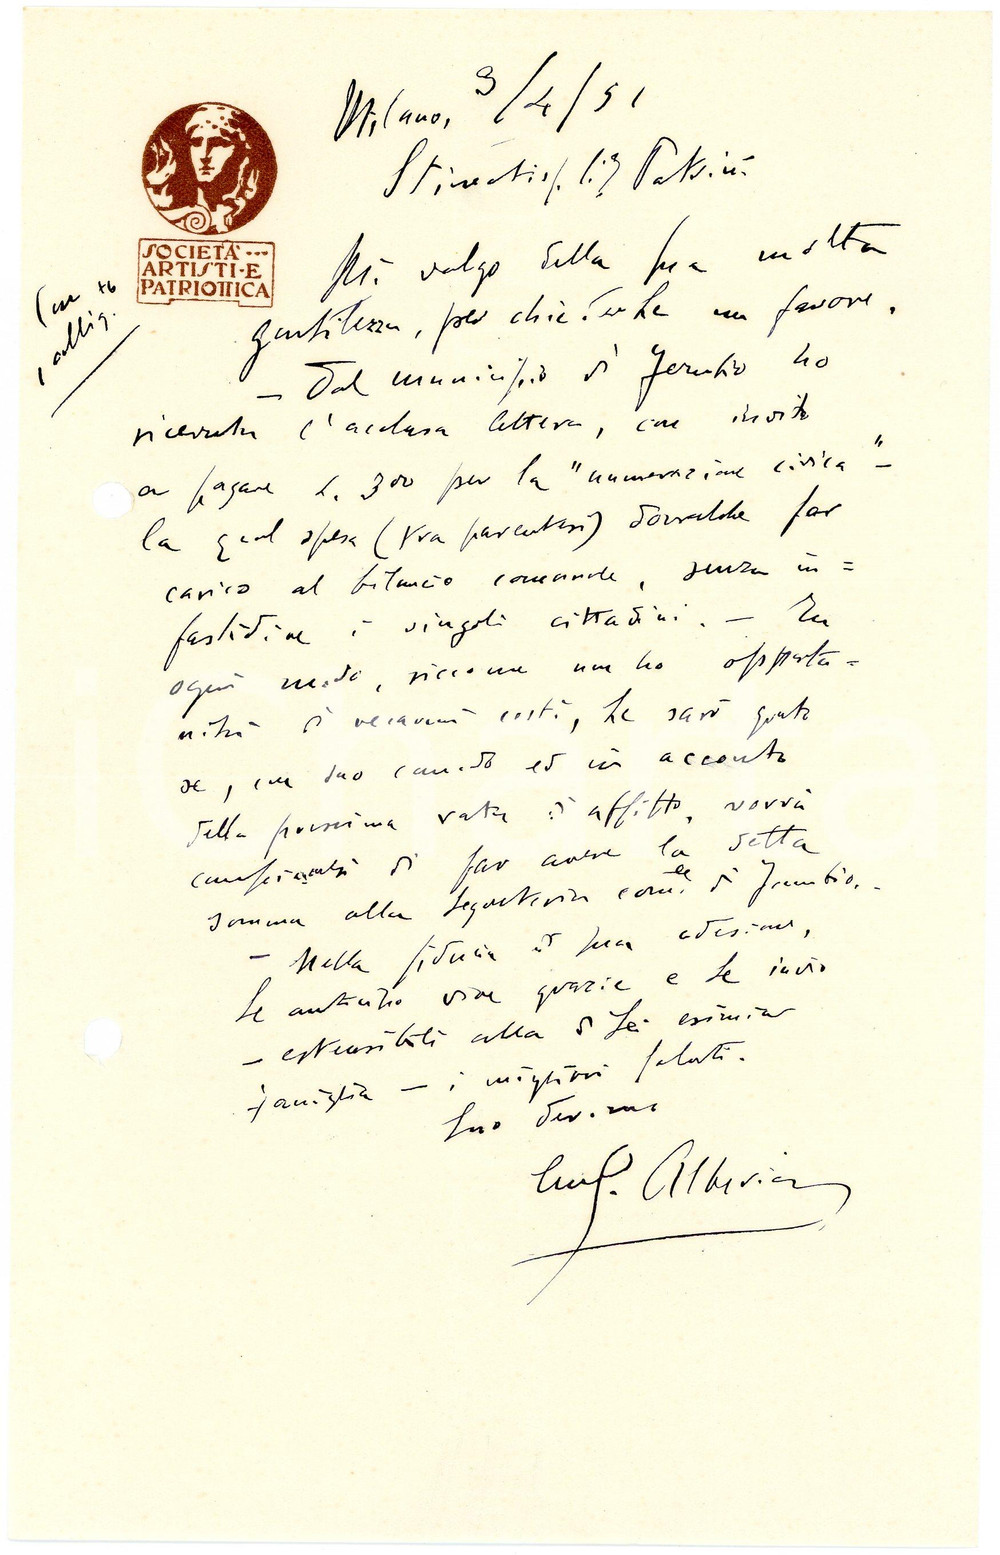 Milano, 3/4/51
Stimatis. Sig.
SOCIETÀ
ARTISTI·E
PATRIOTTICA
con
1 allig.
Mi valgo della sua molta
gentilezza, per chiederLe un favore.
— Dal municipio di Jerubio ho
ricevuta l'acclusa lettera, con invito
a pagare L. 300 per la "numerazione civica" —
la qual spesa (tra parentesi) dovrebbe far
carico al bilancio comunale, senza in=
fastidire i singoli cittadini. — In
ogni modo, siccome non ho opportu=
nità di recarmi costì, Le sarò grato
se, con suo comodo ed in acconto
della prossima rata di affitto, vorrà
compiacersi di far avere la detta
somma alla Segreteria com.le di
— Nella fiducia di sua adesione,
Le anticipo vive grazie e Le invio
— estensibili alla di Lei esimia
famiglia — i migliori saluti.
Suo dev.mo
Alberia